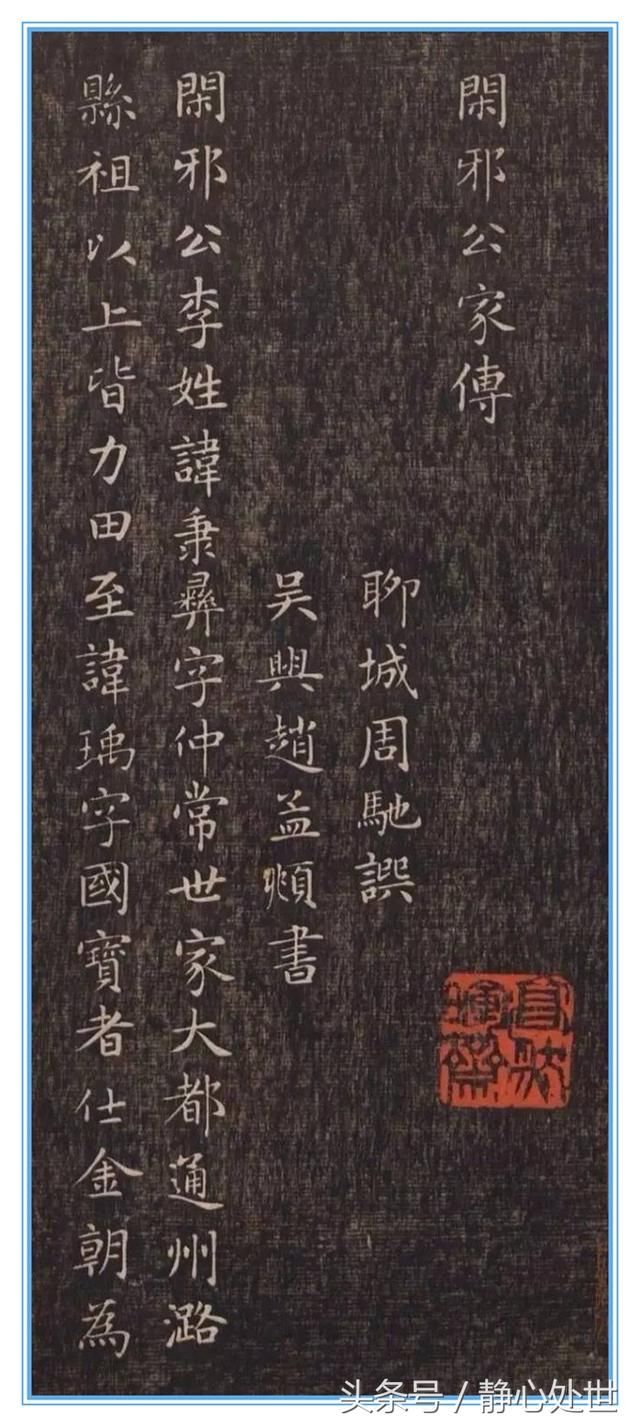 閑邪公家傳
聊城周馳譔
吴興趙孟頫書
閑邪公李姓諱秉彝字仲常世家大都通州潞
縣祖以上皆力田至諱瑀字國寶者仕金朝為
头条号 / 静心处世